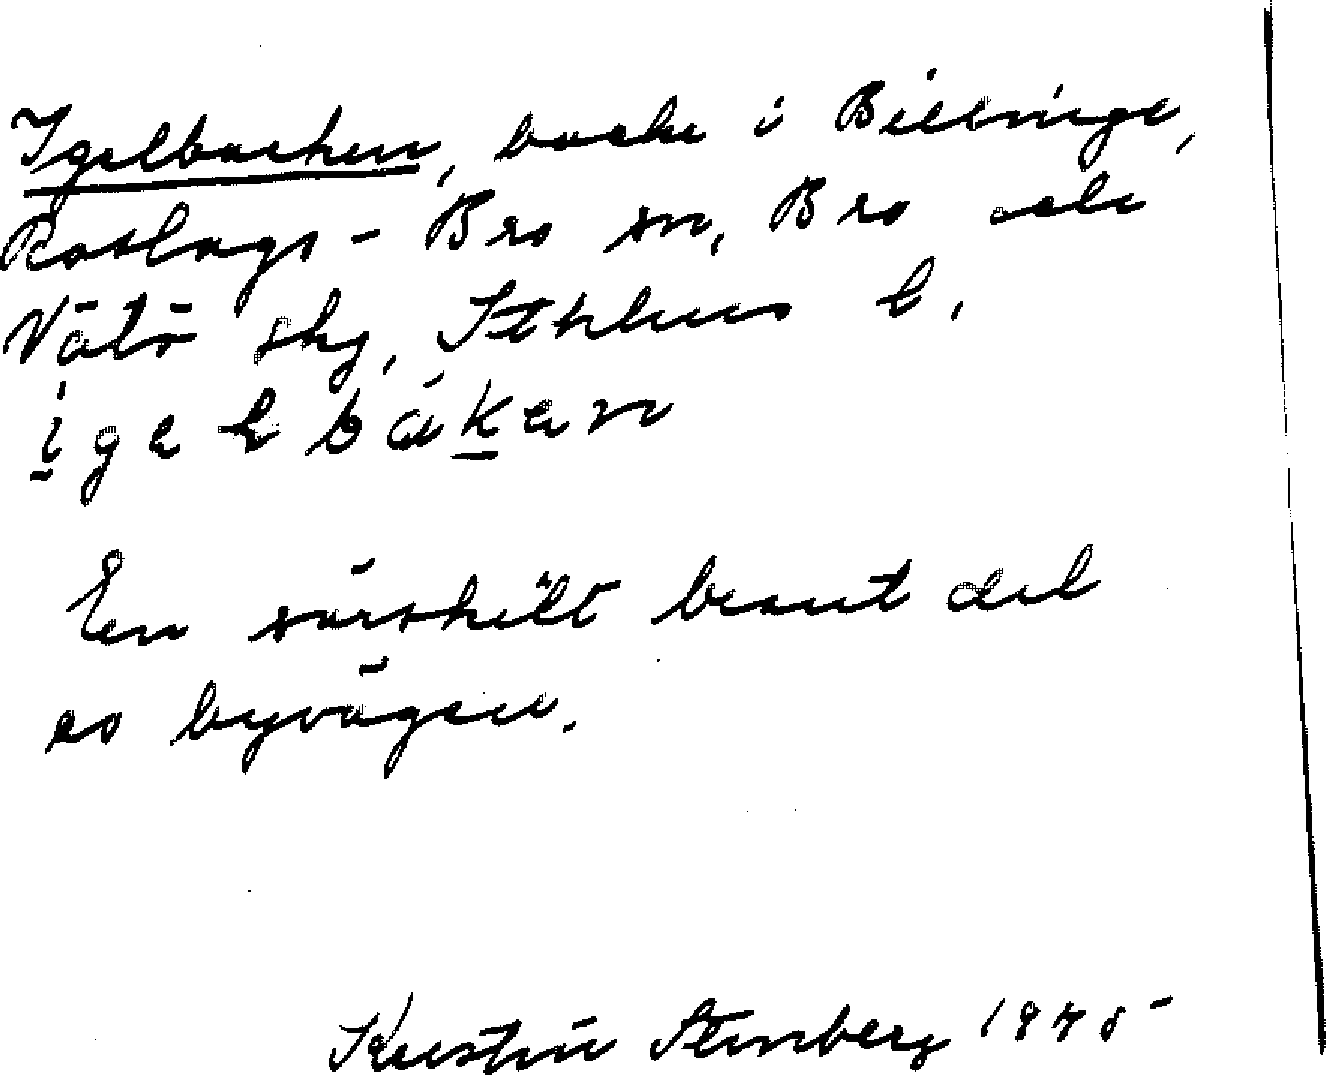 Igelbacken, backe i Billinge,
Roslags-Bro sn, Bro och
Vätö skg, Sthlms l.
igelbákan
En särskilt brant del
av byvägen.
Kerstin Stenberg 1975